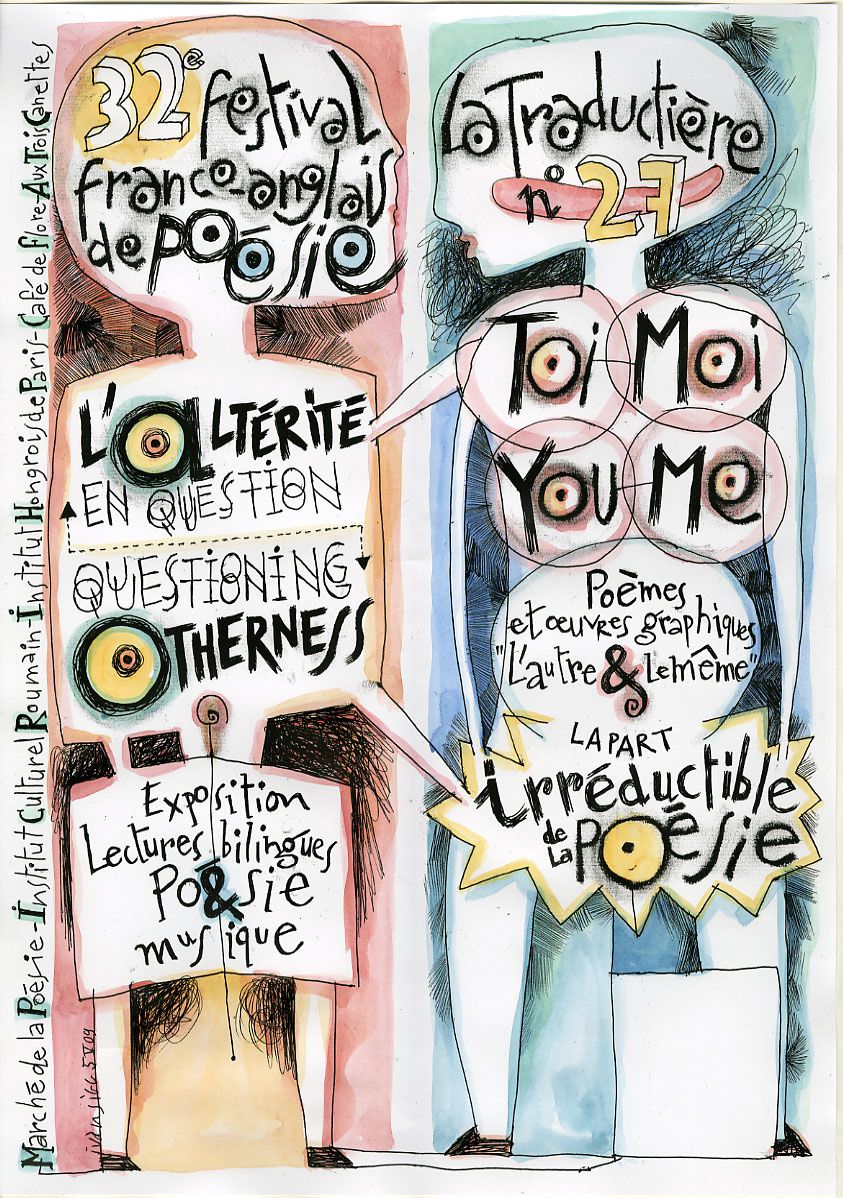 Marché de la Poésie - Institut Culturel Roumain - Institut Hongrois de Paris - Café de Flore - Aux Trois Canettes
32e festival
franco-anglais
de poésie
L'altérité
en question
Questioning
Otherness
Exposition
Lectures bilingues
Po&sie
musique
La Traductière
n° 27
Toi Moi
You Me
Poèmes
et œuvres graphiques
"L'autre & le même"
La part
irréductible
de la poésie